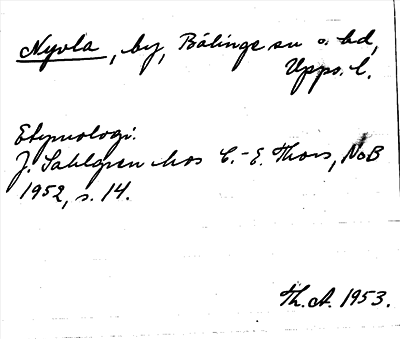 Nyvla, by, Bälinge sn o. hd,
Upps. l.
Etymologi:
J. Sahlgren hos C.-E. Thors, NoB
1952, s. 14.
Th. A. 1953.